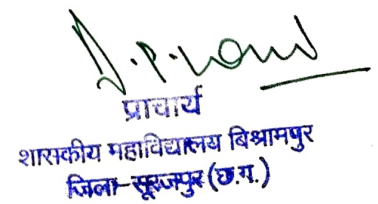 प्राचार्य
शासकीय महाविद्यालय बिश्रामपुर
जिला-सूरजपुर (छ.ग.)